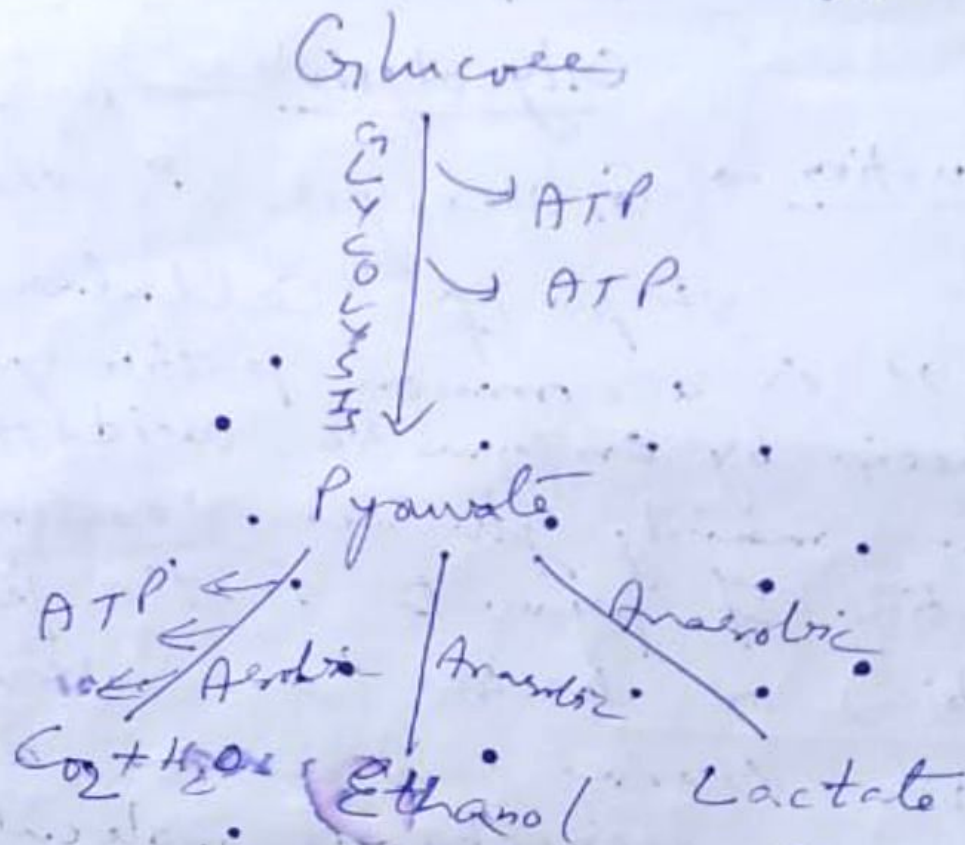 Glucose
GLYCOLYSIS
ATP
ATP
Pyruvate
ATP
Aerobic
Anaerobic
Anaerobic
CO2 + H2O
Ethanol
Lactate